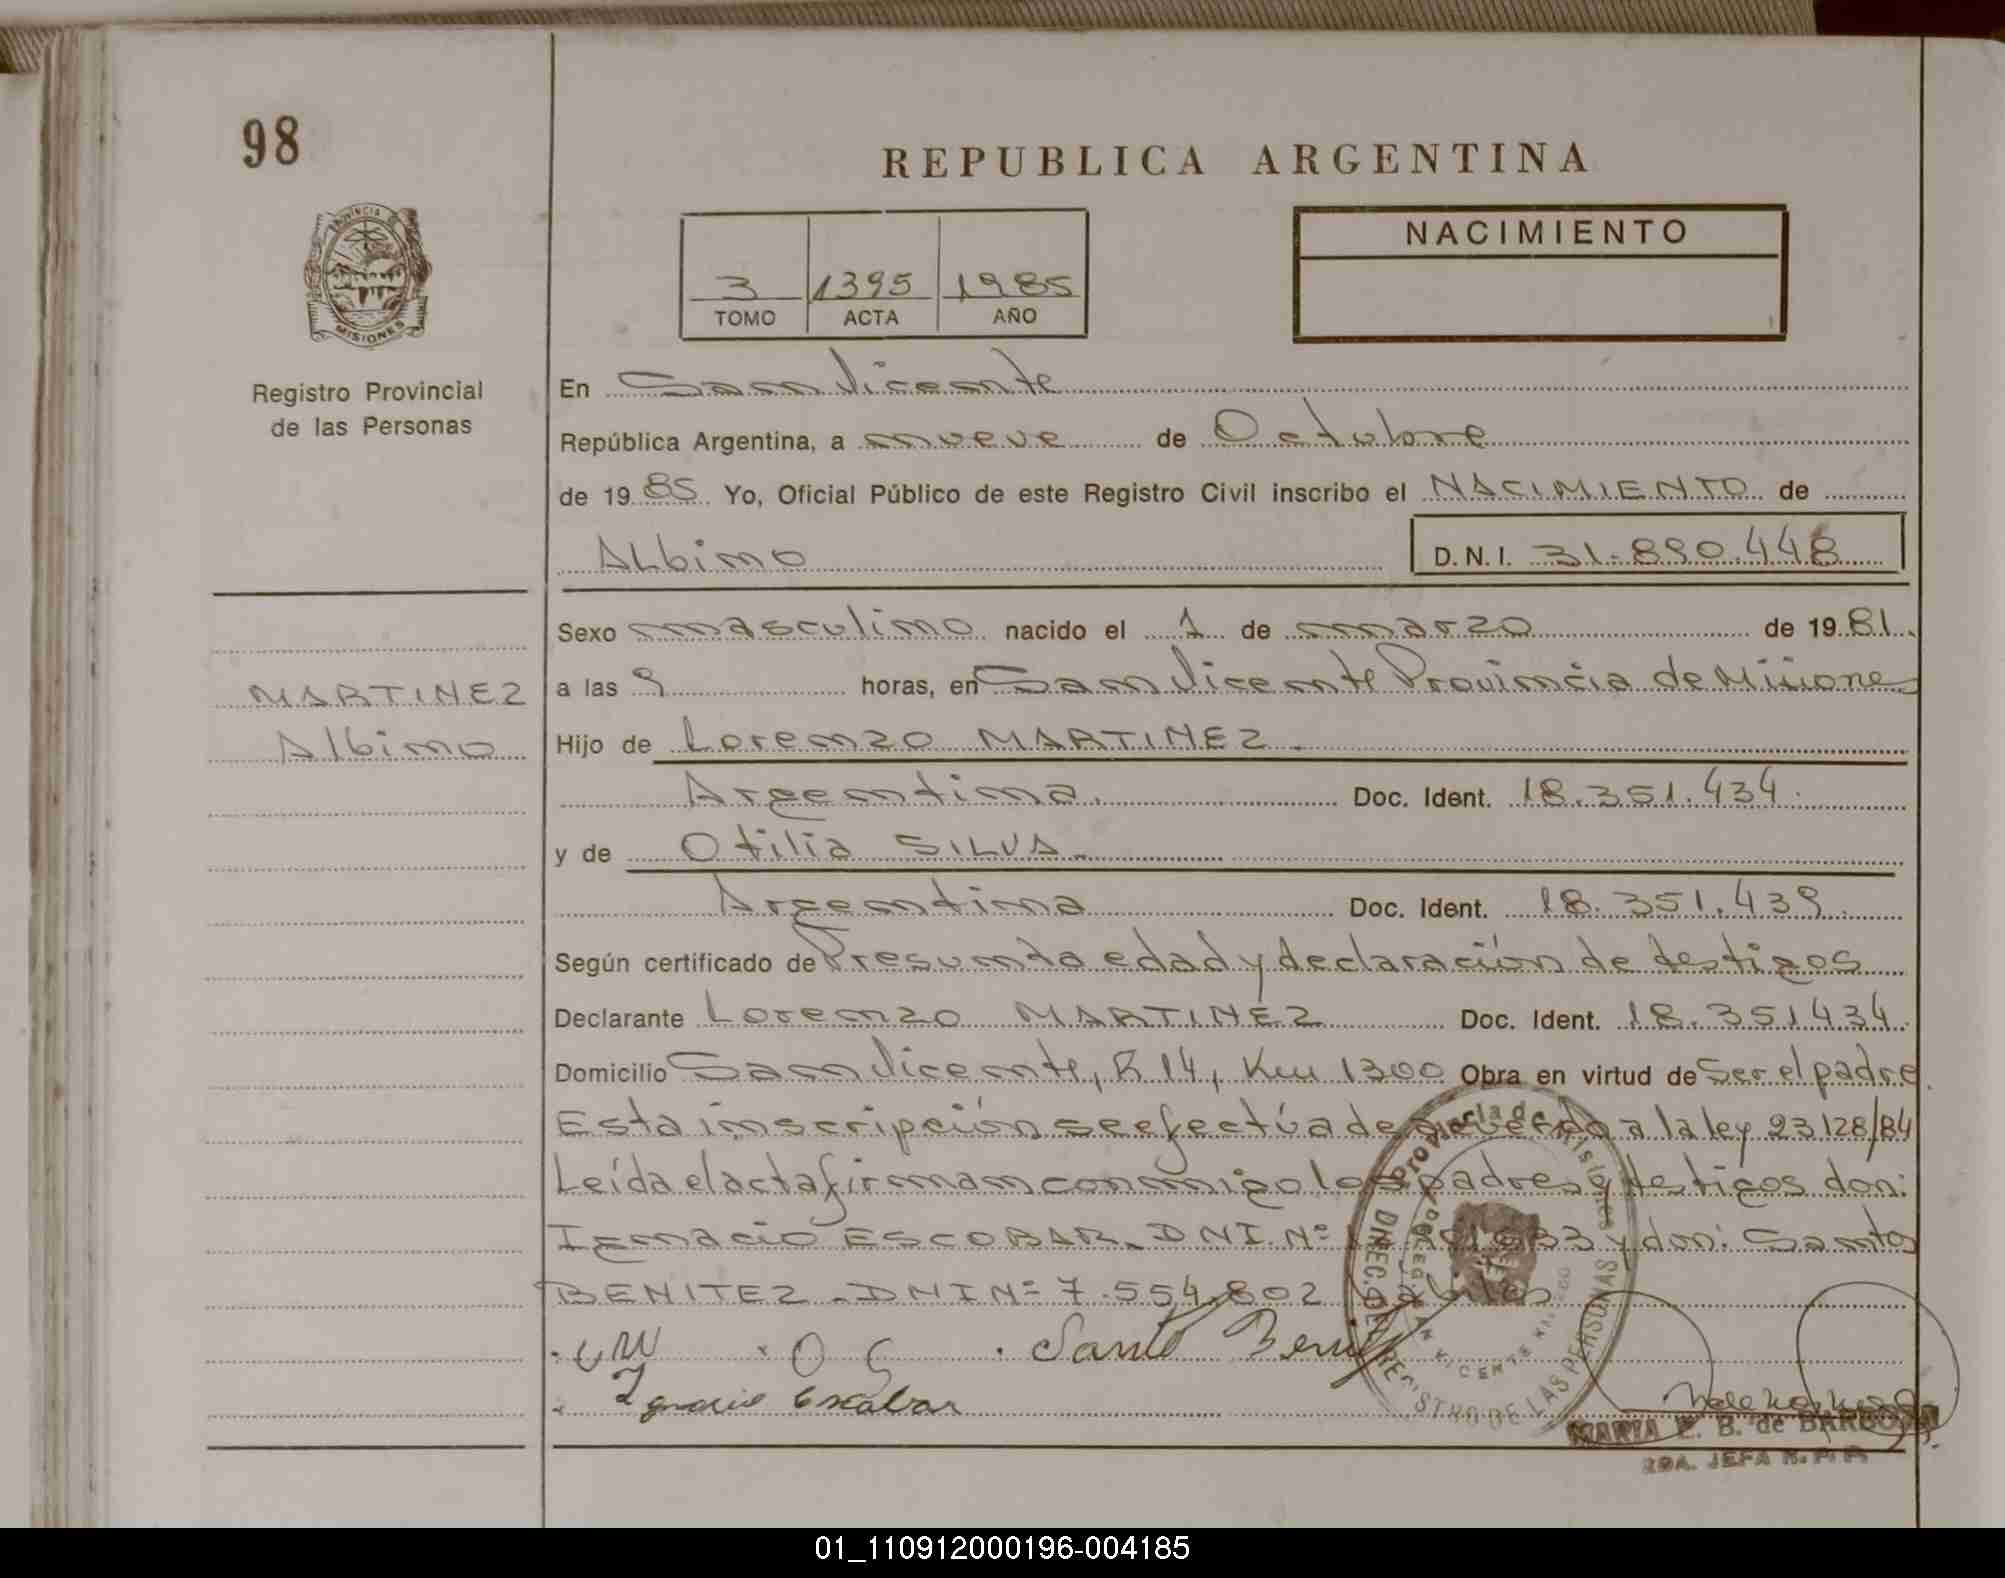 98
REPUBLICA ARGENTINA
PROVINCIA DE
MISIONES
3 1395 1985
TOMO ACTA AÑO
NACIMIENTO
Registro Provincial
de las Personas
En San Vicente
República Argentina, a nueve de Octubre
de 1985 Yo, Oficial Público de este Registro Civil inscribo el NACIMIENTO de
Albino D.N.I. 31.890.448
Sexo masculino nacido el 1 de marzo de 1981.
MARTINEZ
Albino
a las 9 horas, en San Vicente Provincia de Misiones
Hijo de Lorenzo MARTINEZ.
Argentina. Doc. Ident. 18.351.434.
y de Otilia SILVA.
Argentina Doc. Ident. 18.351.439
Según certificado de Presunta edad y declaración de testigos
Declarante Lorenzo MARTINEZ Doc. Ident. 18.351434
Domicilio San Vicente, R 14, Km 1300 Obra en virtud de Ser el padre.
Esta inscripción se efectúa de acuerdo a la ley 23128/84
Leída el acta firman conmigo los padres y testigos don:
Ignacio ESCOBAR. DNI. Nº y don: Santos
BENITEZ. DNI Nº 7.554.802
LM O S Santo Benitez
Ignacio Escobar
Provincia de Misiones
DIREC. DEL REGISTRO DE LAS PERSONAS
MARIA E. B. de BARBOZA
2DA. JEFA R. P. P.
01_110912000196-004185